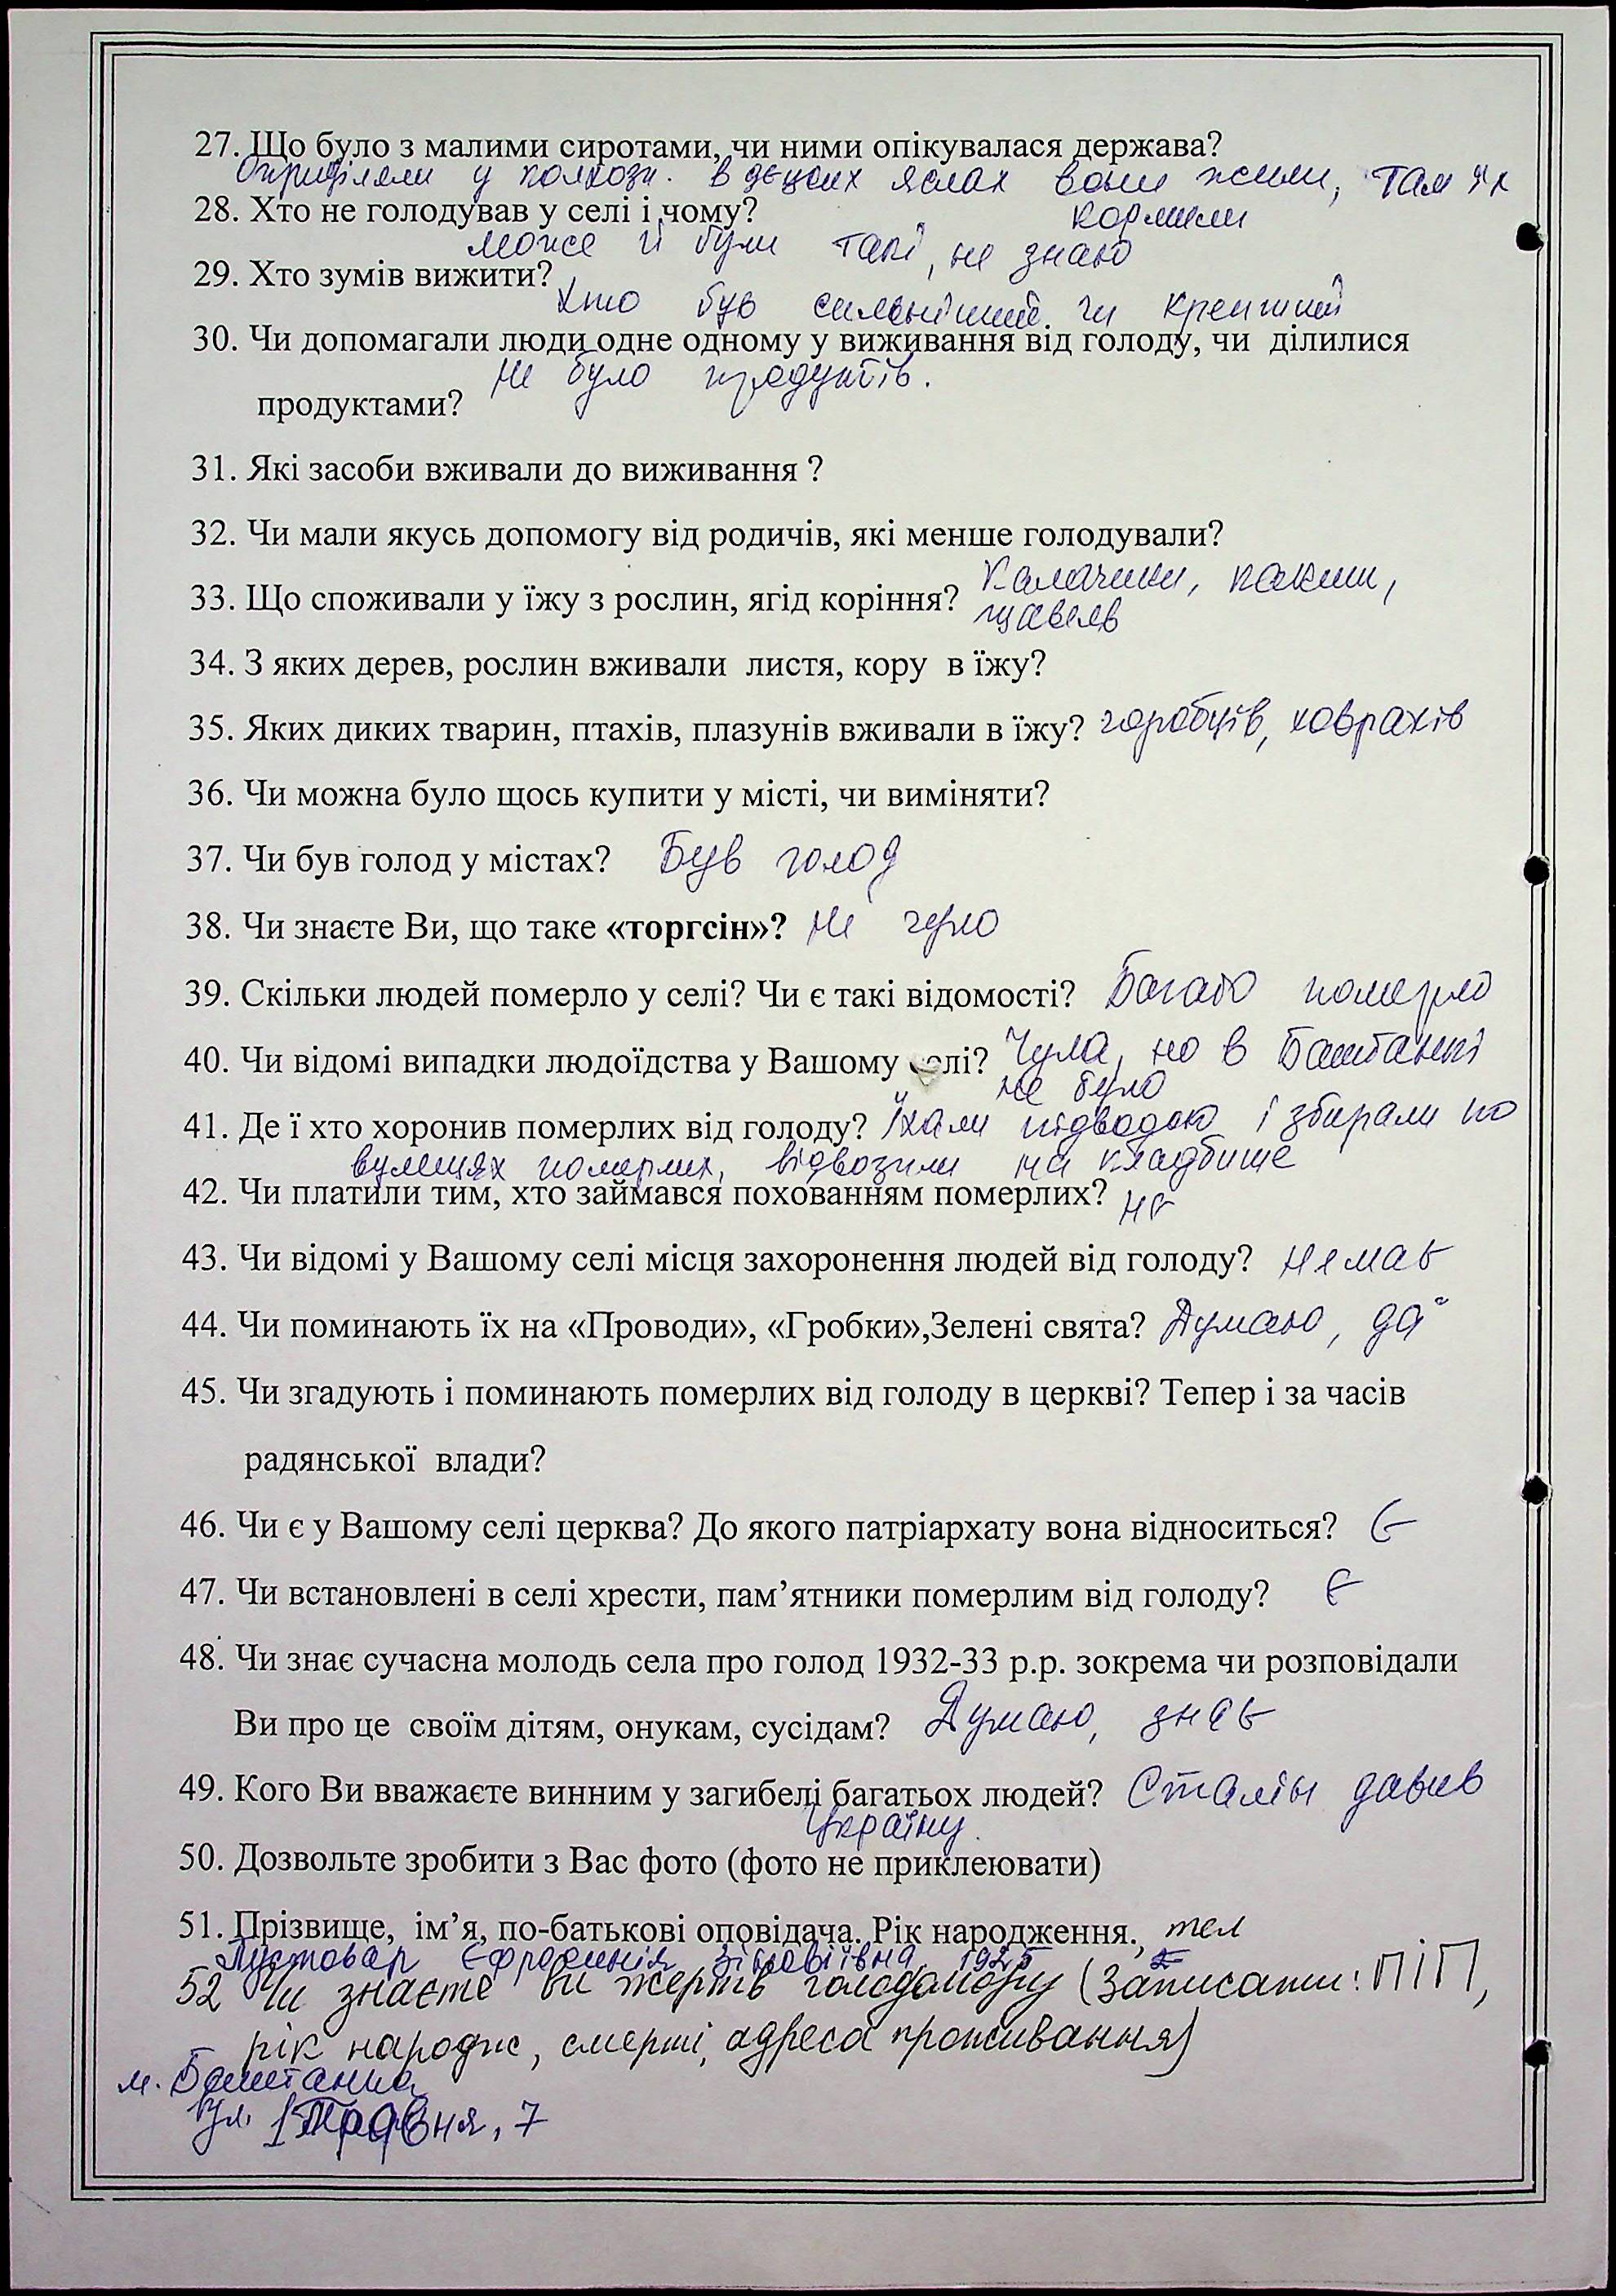 27. Що було з малими сиротами, чи ними опікувалася держава?
Оприділяли у колхози. В дєцких яслах вони жили, там їх
кормили
28. Хто не голодував у селі і чому?
може й були такі, не знаю
29. Хто зумів вижити?
Хто був сильніший чи крепший
30. Чи допомагали люди одне одному у виживання від голоду, чи ділилися
Не було продуктів.
продуктами?
31. Які засоби вживали до виживання ?
32. Чи мали якусь допомогу від родичів, які менше голодували?
33. Що споживали у їжу з рослин, ягід коріння? Калачики,
щавель
34. З яких дерев, рослин вживали листя, кору в їжу?
35. Яких диких тварин, птахів, плазунів вживали в їжу? горобців, ховрахів
36. Чи можна було щось купити у місті, чи виміняти?
37. Чи був голод у містах? Був голод
38. Чи знаєте Ви, що таке «торгсін»? Не чула
39. Скільки людей померло у селі? Чи є такі відомості? Багато померло
40. Чи відомі випадки людоїдства у Вашому селі? Чула, но в Баштанкі
не було
41. Де ї хто хоронив померлих від голоду? Їхали підводою і збирали по
вулицях померлих, відвозили на кладбище
42. Чи платили тим, хто займався похованням померлих? нє
43. Чи відомі у Вашому селі місця захоронення людей від голоду? немає
44. Чи поминають їх на «Проводи», «Гробки»,Зелені свята? Думаю, да
45. Чи згадують і поминають померлих від голоду в церкві? Тепер і за часів
радянської влади?
46. Чи є у Вашому селі церква? До якого патріархату вона відноситься? Є
47. Чи встановлені в селі хрести, пам’ятники померлим від голоду? Є
48. Чи знає сучасна молодь села про голод 1932-33 р.р. зокрема чи розповідали
Ви про це своїм дітям, онукам, сусідам? Думаю, знає
49. Кого Ви вважаєте винним у загибелі багатьох людей? Сталін давив
Україну.
50. Дозвольте зробити з Вас фото (фото не приклеювати)
51. Прізвище, ім’я, по-батькові оповідача. Рік народження., тел
Пустовар Єфросинія Зіновіївна 1925
52 Чи знаєте ви жертв голодомору (Записати: ПІП,
рік народж, смерті, адреса проживання)
м. Баштанка
вул. 1 Травня, 7